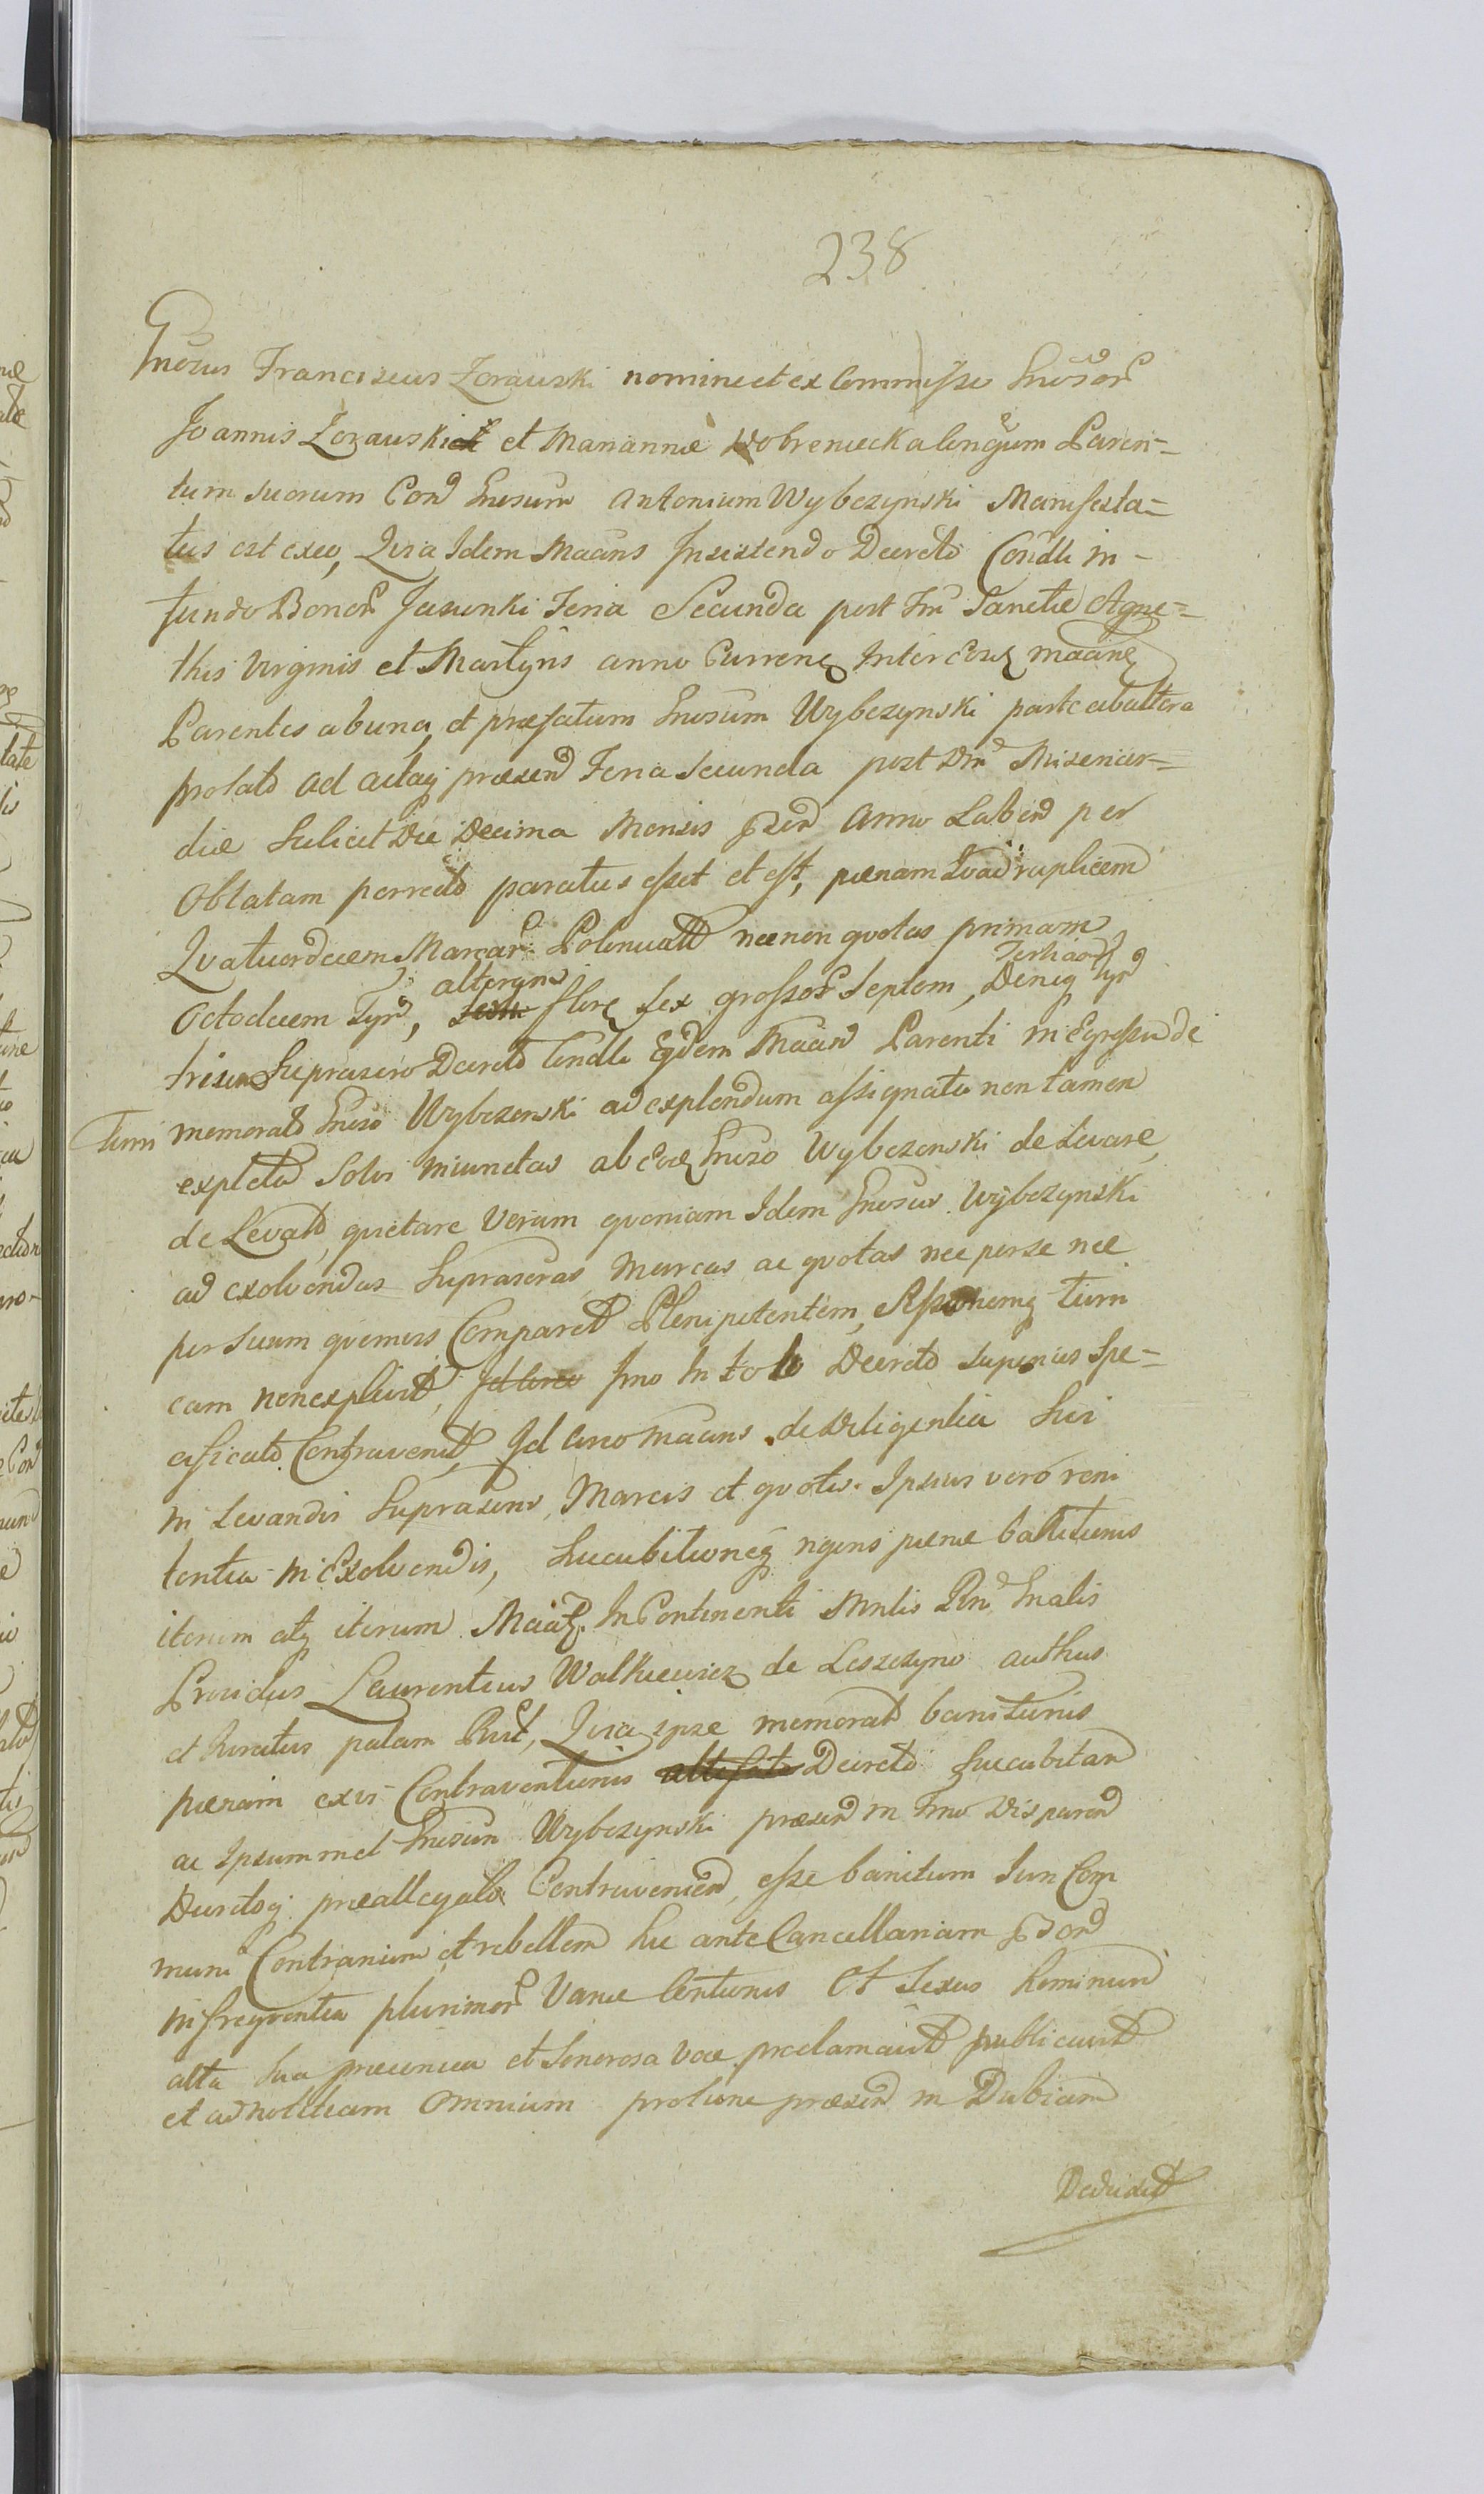 238
Gnosus Franciscus Zorawski nomine et ex Commisso Gnosor
Joannis Zorawski et Mariannæ Dobreniecka Congum Paren-
tum suorum Con Gnosum Antonium Wybczynski Manifesta-
tus est exeo, Quia Idem Maans Insistendo Decreto Condli in
fundo Bonor Jasionki Feria Secunda post Fm Sanctæ Agne-
this Virginis et Martyris anno Curren Inter Eosq maane
Parentes ab una et præfatum Gnosum Wybczynski parte ab altera
prolato ad actaq præsen Feria Secunda post Dm Misericor-
diæ scilicet Die Decima Mensis Anno Laben per
Oblatam porrecto paratus esset et est, pænam Quadruplicem
Quatuordecem Marcar Polonicall necnon quotas primam
Octodecem Tyn, alteram flore sex grossor Septem, Deniq Tertiam Tyn
trium suprascro Decreto Condli Eqdem Maan Parenti in Egressu de
Timi memorato Gnoso Wybczenski ad explendum assignatæ non tamen
expleta Solvi iniunctas ab Eodq Gnoso Wybczenski de Levare,
de Levato, quietare Verum qvoniam Idem Gnosus Wybczynski
ad exolvendas Suprascras Marcas ac quotas nec per se nec
per suum qvemvis Comparet Plenipotentem, Assionemq tum
eam non explevit, Imo In toto Decreto Superius Spe-
cificato Contravenit, Id Circo Maans de Diligentia Sui
in Levandis Suprascris Marcis et qvotis. Ipsius vero reni
tentia in Exolvendis, Succubitioneq rigens pænæ banitionis
iterum atq iterum In Continenti Mnlis Rni Gnalis
Providus Laurentius Walkiewicz de Leszczyno authus
et Juratus palam Rkt, Quia ipse memorat banitionis
pænam exvi Contraventionis Decreto Succubitam
ac Ipsummet Gnosum Wybczynski præsen in Tmo Disparen
Decretoq præallegato Contravenien, esse banitum Iuri Com
muni Contrarium et rebellem hic ante Cancellariam
in freqventia plurimor Variæ Centionis Et Sexus hominum
alta sua præconica et Sonorosa voce proclamavit publicavit
et ad notitiam Omnium protunc præsen in Dubiam
Deduxit